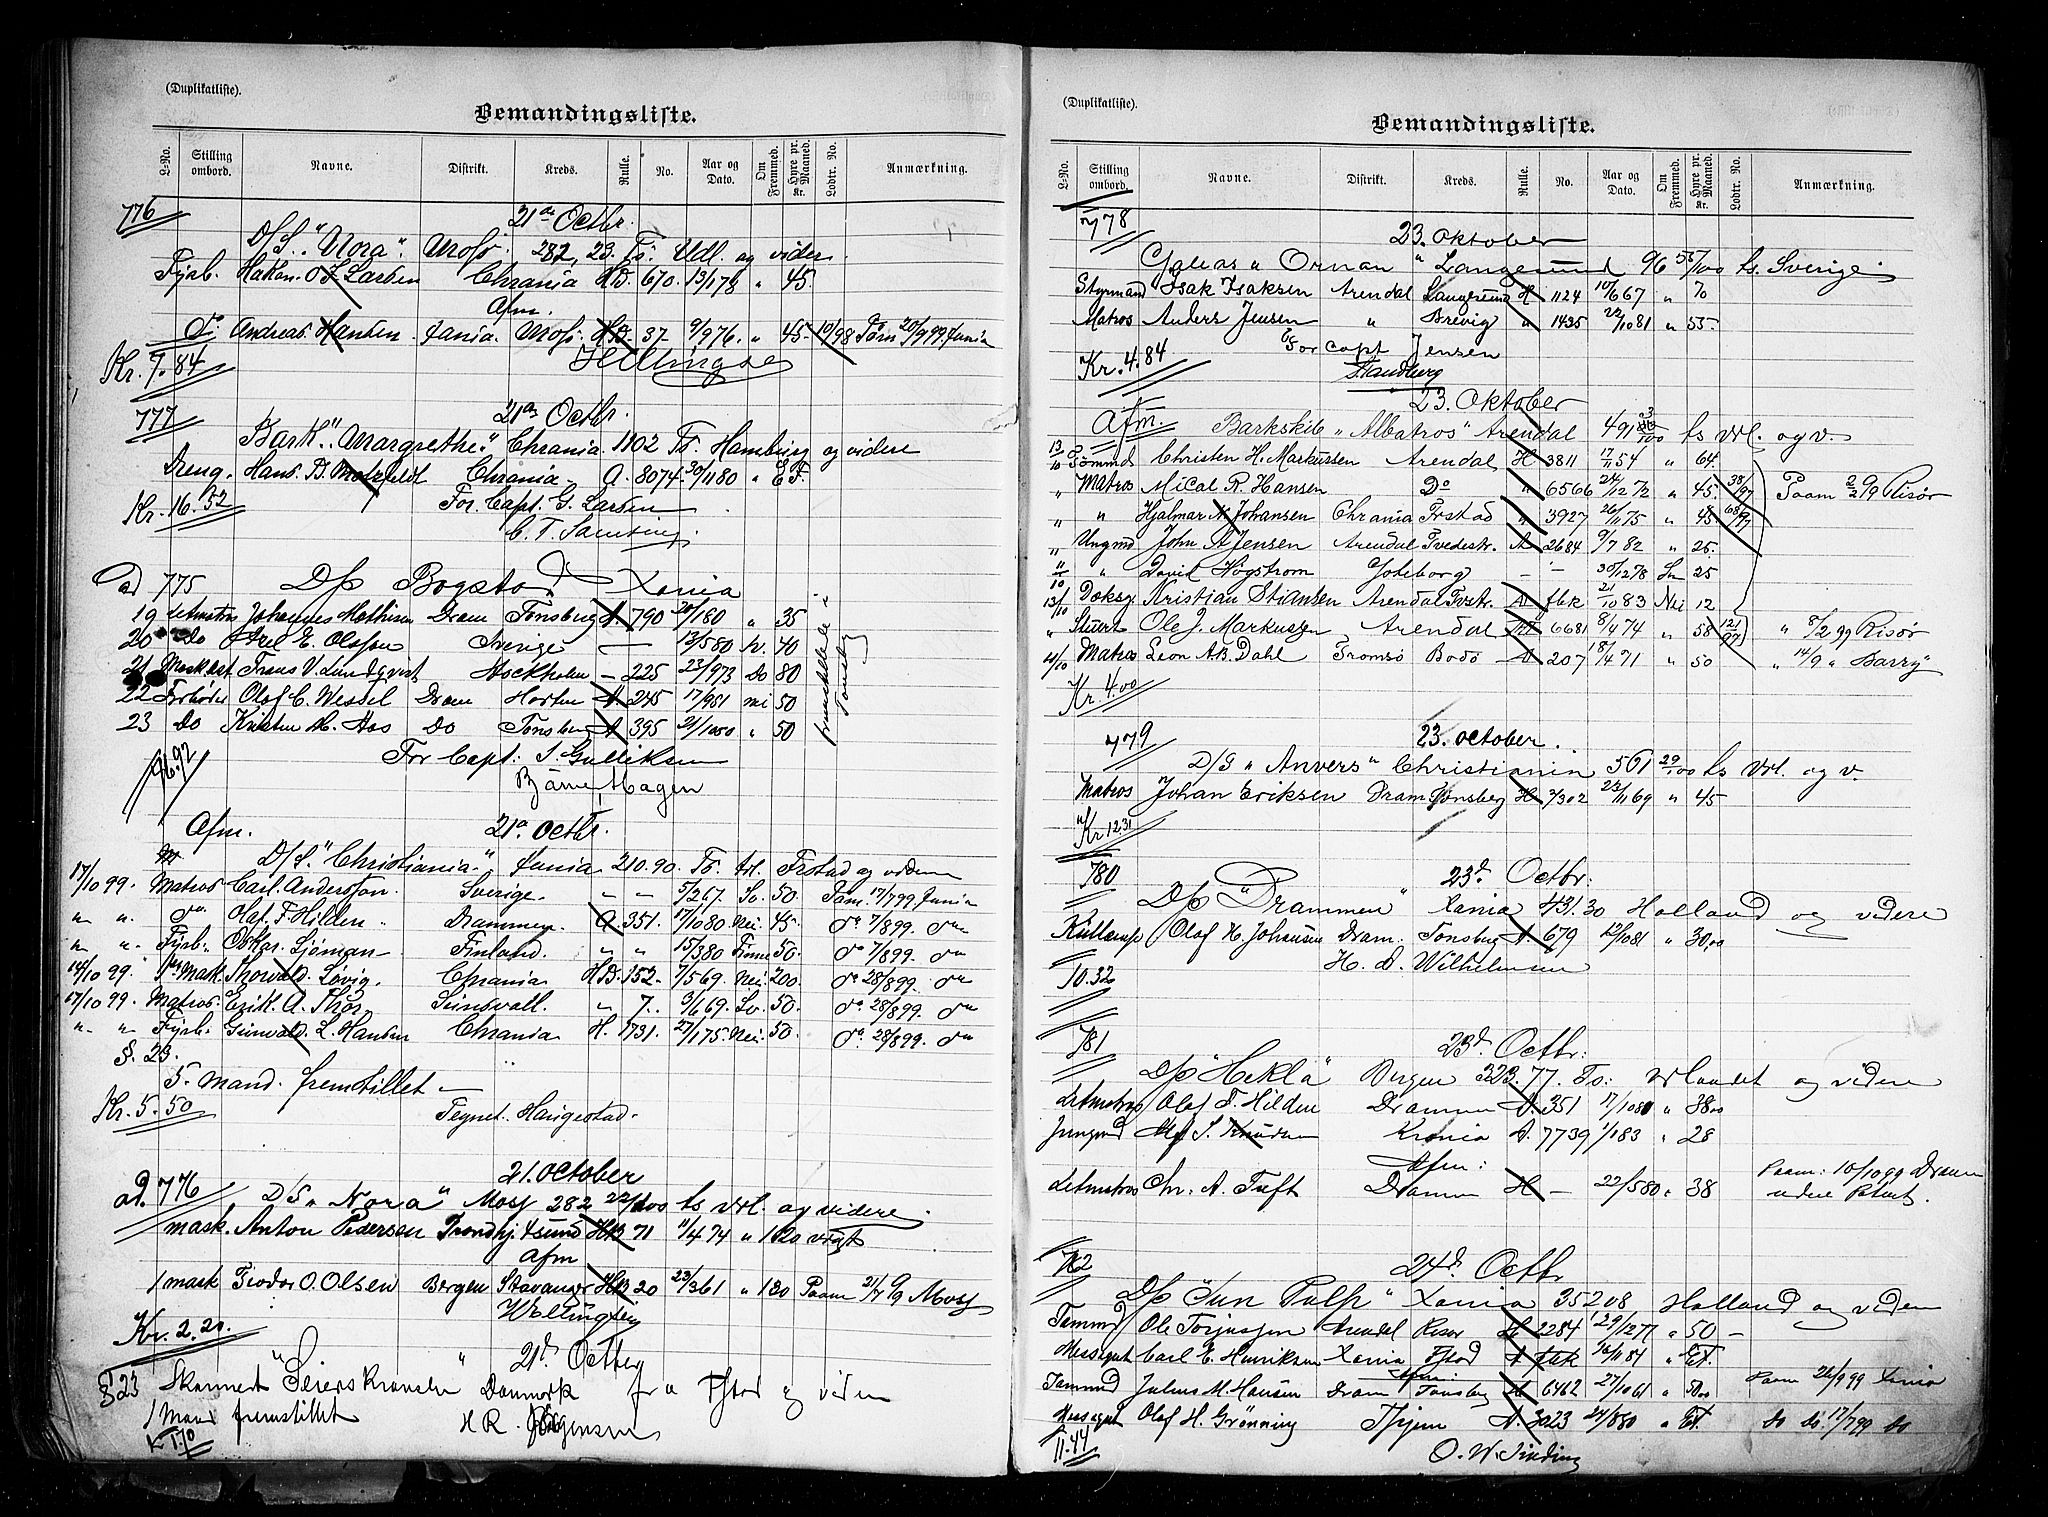 (Duplikatliste).
Bemandingsliste.
L-No. Stilling ombord. Navne. Distrikt. Kreds. Rulle. No. Aar og Dato. Om Fremmed. Hyre pr. Maaned. Kr. Lodtr. No. Anmærkning.
776 21de Octbr.
D/S. "Nora". Moss. 282,23. Ts. Udl. og videre
Fyrb. Hakon Larsen Chrania HB. 670. 13/1 78 " 45.
Afm.
Do Andreas Hansen. Xania. Moss. HB. 37 9/9 76. " 45. 10/98 Paam 20/9 99. Xania
Kr. 7.84
777 21de Octbr.
Bark. "Margrethe." Chrania. 1102 Ts. Hamburg og videre
Dreng. Hans B. Chrania. A. 8074. 30/11 80 "
Kr. 16.52 For Capt. G. Larsen
ad 775 D/S Bogstad Xania
19 Letmatros Johannes Mathisen Dram Tønsberg A. 790 20/1 80 " 35
20 Do Axel E. Olsson Sverige — 12/5 80 40
21 Frans V. Lundqvist Stockholm — 225 23/9 73 Do 80
22 Fyrbøder Olaf C. Wessel Dram Horten A. 245 17/9 81 50
23 Do Kristen M. Aas Do Tønsberg A 395 21/10 50 " 50
96.92 For Capt: S. Gulliksen
Bjarne Hagen
Afm. 21de Octbr.
D/S. "Christiania." Xania. 210.90. Ts. Frstad og videre
17/10 99. Matros Carl Andersson. Sverige. — — 5/2 67. Sv. 50. Paam. 17/7 99. Xania
" " do Olaf. F. Hilden. Drammen. A. 351. 17/10 80 Nei 45. do 7/8 99. do
" " Fyrb. Oskar Sjöman Finland. " " 15/3 80 Finne 50. do 7/8 99. do
14/10 99. Mask. Thorvald Løvig. Chrania HB. 152. 7/5 69. Nei. 200. do 28/8 99. do
17/10 99 Matros. Erik. A. Thor Sundsvall. " 7. 3/1 69. Sv. 50. do 28/8 99. do
" " Fyrb. Gunvald L. Hansen Chrania H. 1731. 27/1 75. Nei. 50. do 28/8 99. do
§. 23.
5. mand. fremstillet —
Kr. 5.50 Tegnet. Haugestad.
ad. 776 21. October
D/S. "Nora" Moss 282 22/100 ts Udl. og videre.
mask. Anton Pedersen Trondhj. Xsund HB 71 11/4 74 " 120
Afm
1 mask Teodor O. Olsen Bergen Stavanger HB 20 23/3 61 " 120 Paam 21/7 99 Moss
Kr. 2.20.
21de Octbr
§ 23 Skonnert "Seierskransen" Danmark fra Fstad og viden
1 Mand fremstillet H R. Jørgensen
Kr 1.10
(Duplikatliste).
Bemandingsliste.
L-No. Stilling ombord. Navne. Distrikt. Kreds. Rulle. No. Aar og Dato. Om Fremmed. Hyre pr. Maaned. Kr. Lodtr. No. Anmærkning.
778 23. oktober
Galeas "Ornan" Langesund 96 55/100 ts. Sverige
Styrmand Isak Isaksen Arendal Langesund H 1124 10/6 67 " 70
Matros Anders Jensen " Brevig " 1435 22/10 81 " 55.
For capt Jensen
Kr. 4.84 Sandberg
23. Oktober
Afm. Barkskib "Albatros" Arendal 491 ts Udl. og v.
13/10 Tømmd Christen H. Markussen Arendal H 3811 17/11 54 " 64.
" Matros Mical R. Hansen Do " 6566 24/12 72 " 45. 38/97 Paam 2/2 99 Risør
" " Hjalmar N. Johansen Chrania Frstad " 3927 26/11 75 " 45 68/97
" Ungmd John A. Jensen Arendal Tvedestr. A 2684 9/7 82 " 25.
11/10 " David Högstrom Göteborg — — 30/12 78 Sv 25
13/10 Doksg Kristian Stiansen Arendal Tvestr. A fbk 21/10 83 Nei 12
" Stuert Ole J. Markussen Arendal A 6681 8/4 74 " 58 121/97 " 8/2 99 Risør
14/10 Matros Leon A.B. Dahl Tromsö Bodö A 207 18/4 71 " 50 " 14/9 "Barry"
Kr. 4.00
779 23. october.
D/S "Anvers" Christiania 561 29/100 ts Udl. og v.
Matros Johan Eriksen Dram Tönsberg H 7302 22/11 69 " 45
Kr 12.31
780 23d. Octbr:
D/S "Drammen" Xania 431.30 Holland og videre
Kullemp Olof H. Johansen Dram. Tønsberg A. 679 12/10 81 " 30,00
H. d. Wilhelmsen
10.32
781 23d. Octbr:
D/S "Hekla" Bergen 323.77. Ts: Udlandet og videre
Letmatros Olaf F. Hilden Drammen A. 351 17/10 80 " 38 00
Jungmd Alf S. Knudsen Krania A. 7739 1/1 83 " 28
Afm:
Letmatros Chr. A. Tuft Drammen H — 22/5 80 " 38 Paam: 10/10 99 Dramn
782 24d. Octbr
D/S "Sun Pulp" Xania 352 08 Holland og viden
Tømmd Ole Torjussen Arendal Risør H 2284 29/12 77 " 50 —
Messegut Carl E. Henriksen Xania Fstad A fbk 26/11 84 " Et.
Afm:
Tømmd Julius M. Hansen Dram Tønsbg H 6462 27/10 61 " 50 00 Paam 26/9 99 Xania
Messegut Olaf H. Grønning A. 3023 24/8 80 " Et. do do 17/7 99 do
11.44 O. W. Sinding